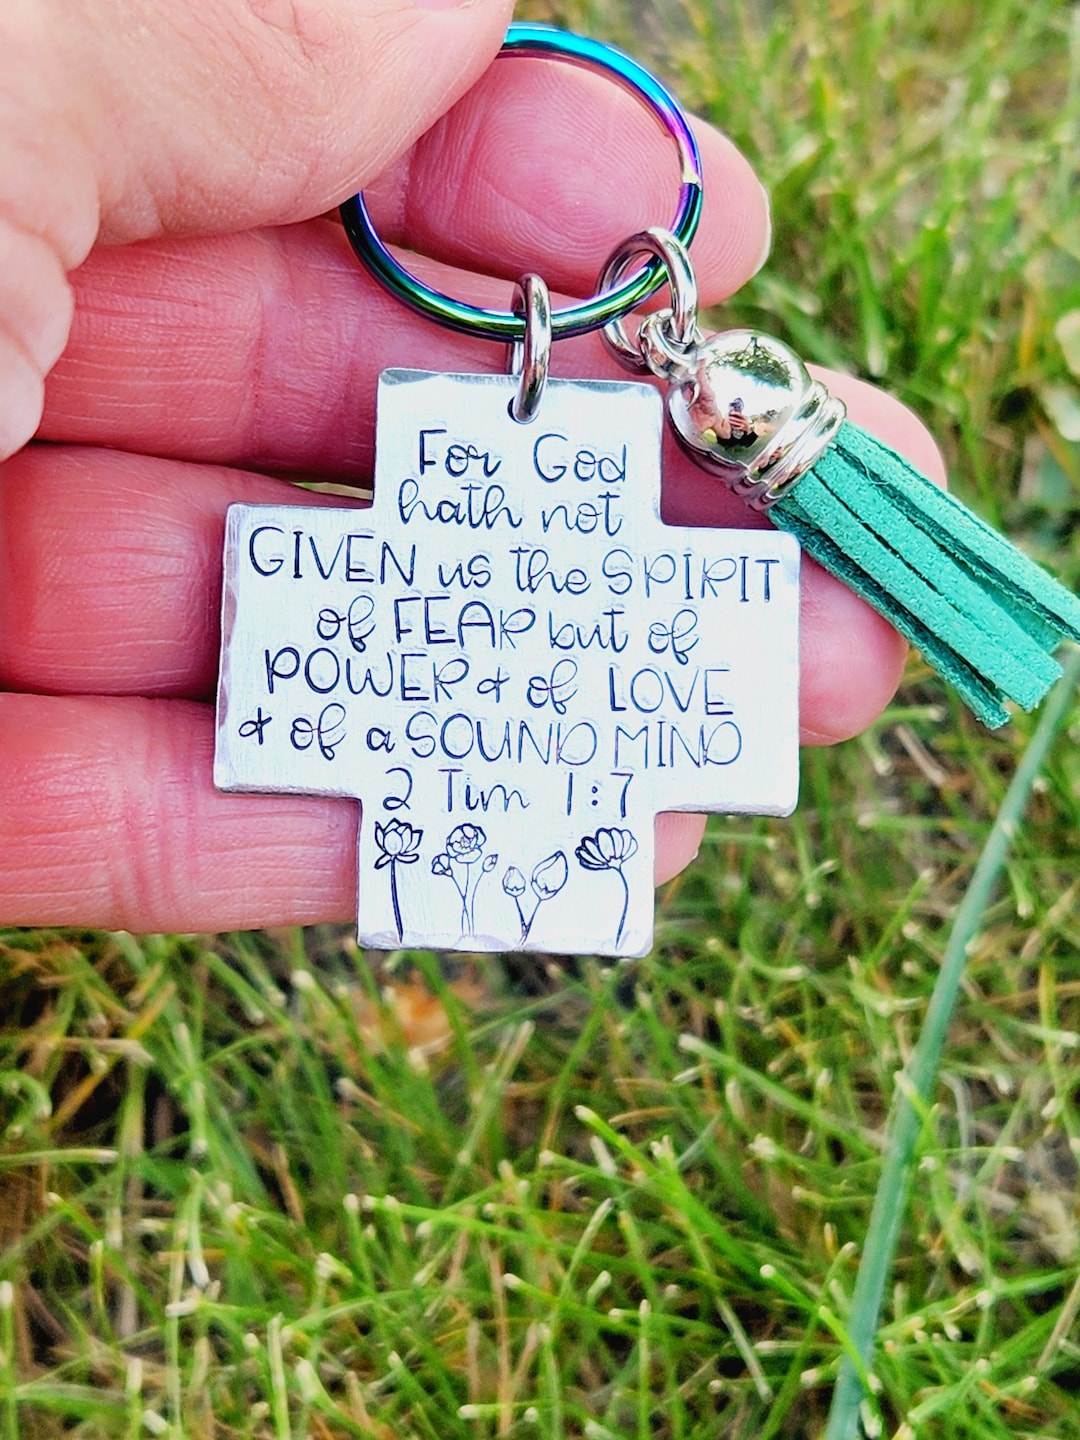 For God
hath not
GIVEN us the SPIRIT
of FEAR but of
POWER & of LOVE
& of a SOUND MIND
2 Tim 1:7